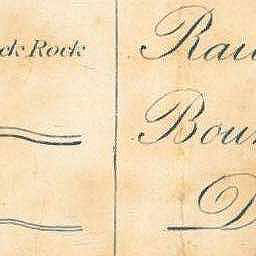 ck Rock
Rau
Boun
D